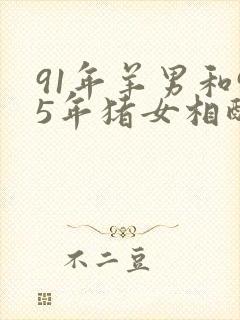 91年羊男和9
5年猪女相配
不二豆